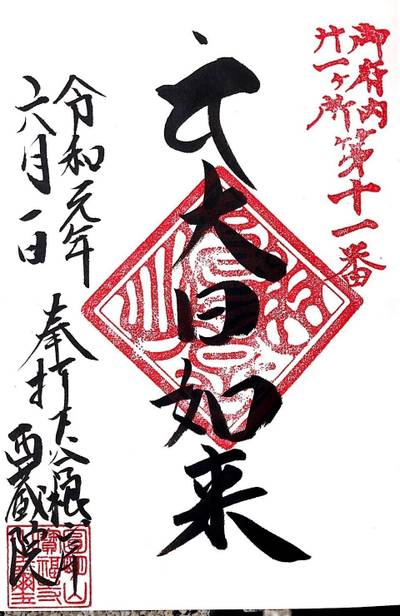 御府内
廿一ヶ所第十一番
大日如来
令和元年
六月一日
奉打下谷根岸
西蔵院